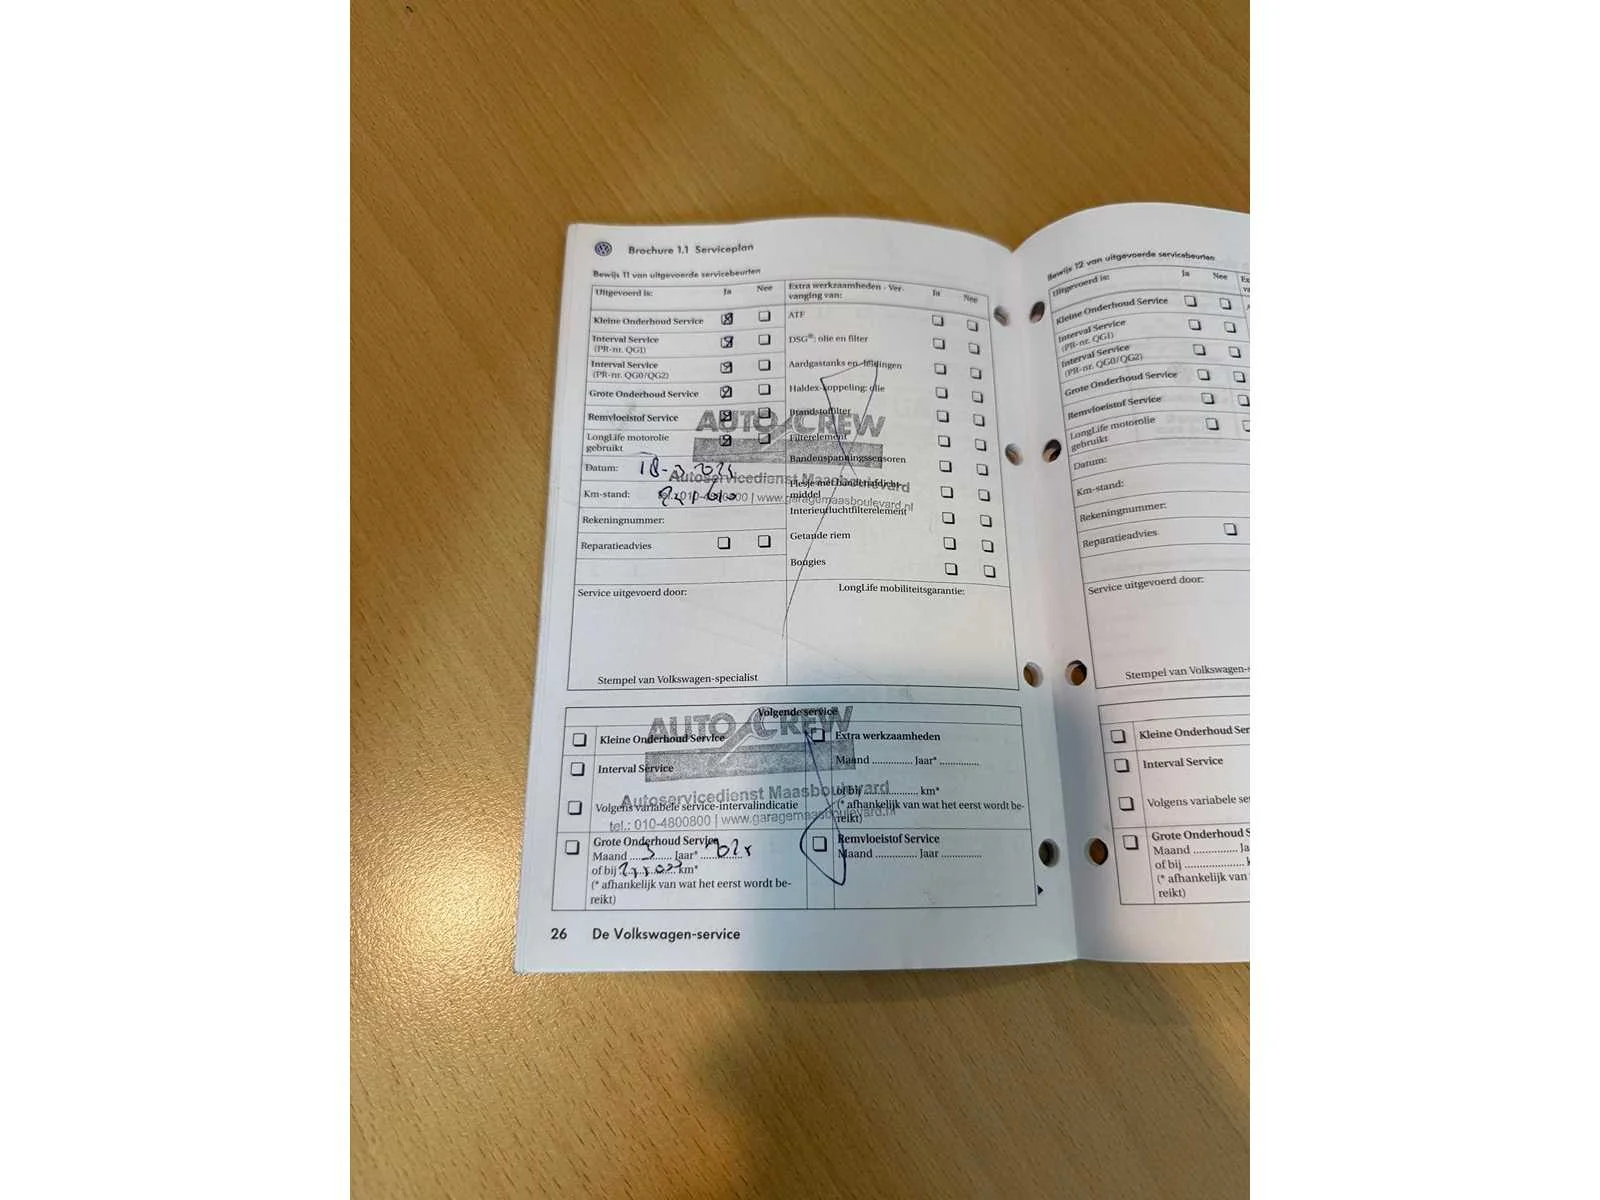 Brochure 1.1 Serviceplan
Bewijs 11 van uitgevoerde servicebeurten
Uitgevoerd is:
Ja
Nee
Kleine Onderhoud Service
Interval Service
(PR-nr. QG1)
Interval Service
(PR-nr. QG0/QG2)
Grote Onderhoud Service
Remvloeistof Service
LongLife motorolie
gebruikt
Datum:
Km-stand:
Rekeningnummer:
Reparatieadvies
Extra werkzaamheden - Ver-
vanging van:
Ja
Nee
ATF
DSG®: olie en filter
Aardgastanks en -leidingen
Haldex-koppeling: olie
Brandstoffilter
Filterelement
Bandenspanningssensoren
Flesje met bandenafdicht-
middel
Interieurluchtfilterelement
Getande riem
Bougies
AUTO CREW
Autoservicedienst Maasboulevard
tel.: 010-4800800 | www.garagemaasboulevard.nl
Service uitgevoerd door:
LongLife mobiliteitsgarantie:
Stempel van Volkswagen-specialist
Volgende service
Kleine Onderhoud Service
Interval Service
Volgens variabele service-intervalindicatie
Grote Onderhoud Service
Maand ........ Jaar* ........
of bij ........ km*
(* afhankelijk van wat het eerst wordt be-
reikt)
Extra werkzaamheden
Maand .............. Jaar* ..............
of bij .............. km*
(* afhankelijk van wat het eerst wordt be-
reikt)
Remvloeistof Service
Maand .............. Jaar ..............
AUTO CREW
Autoservicedienst Maasboulevard
tel.: 010-4800800 | www.garagemaasboulevard.nl
26 De Volkswagen-service
Bewijs 12 van uitgevoerde servicebeurten
Uitgevoerd is:
Ja
Nee
Kleine Onderhoud Service
Interval Service
(PR-nr. QG1)
Interval Service
(PR-nr. QG0/QG2)
Grote Onderhoud Service
Remvloeistof Service
LongLife motorolie
gebruikt
Datum:
Km-stand:
Rekeningnummer:
Reparatieadvies
Service uitgevoerd door:
Stempel van Volkswagen-s
Kleine Onderhoud Ser
Interval Service
Volgens variabele se
Grote Onderhoud S
Maand .............. Ja
of bij ..............
(* afhankelijk van
reikt)